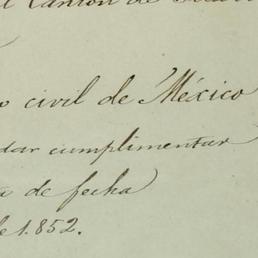 l Canton de
civil de México
dar cumplimentar
de fecha
de 1.852.